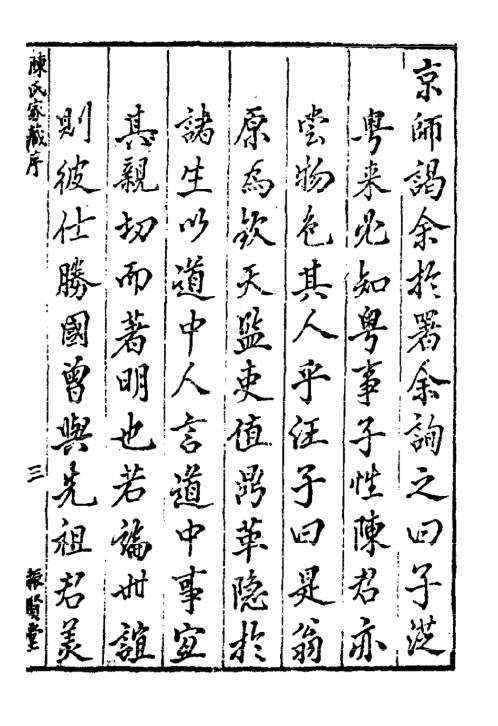 京師謁余於署余詢之曰子從
粤来必知粤事子性陳君亦
嘗物色其人乎汪子曰是翁
原為欽天監吏值鼎革隐於
諸生以道中人言道中事宜
其親切而著明也若論世誼
則彼仕勝國曾與先祖君美
陳氏家藏序
三
振賢堂